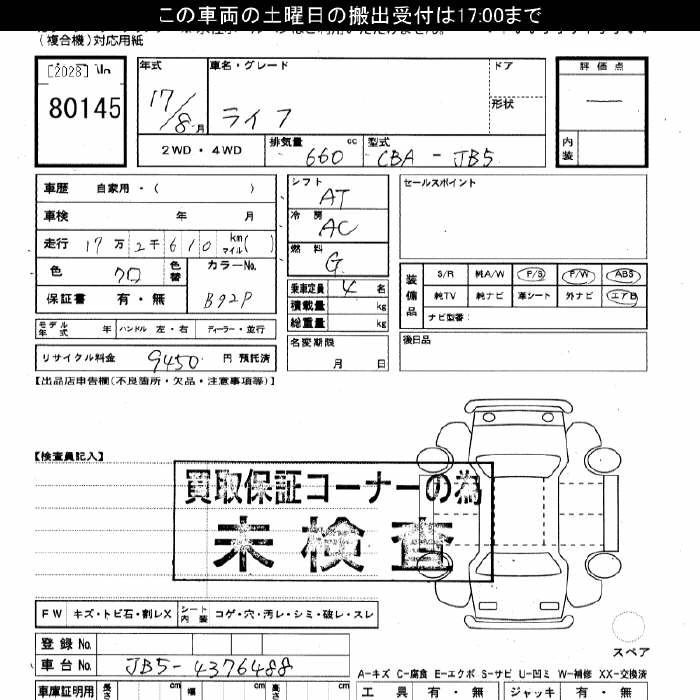 この車両の土曜日の搬出受付は17:00まで
(複合機)対応用紙
[2028]
80145
年式 17/8月
車名・グレード ライフ
ドア
形状
評価点 —
内装
2WD・4WD
排気量 660 cc
型式 CBA - JB5
車歴 自家用・( )
車検 年 月
走行 17万2千610 km マイル( )
色 クロ 色替
カラーNo. B92P
保証書 有・無
シフト AT
冷房 AC
燃料 G
乗車定員 4名
積載量 kg
総重量 kg
セールスポイント
装備品
S/R 純A/W P/S P/W ABS
純TV 純ナビ 革シート 外ナビ エアB
ナビ型番:
モデル年式 年 ハンドル 左・右 ディーラー・並行
リサイクル料金 9450 円 預託済
名変期限 月 日
後日品
【出品店申告欄(不良箇所・欠品・注意事項等)】
【検査員記入】
買取保証コーナーの為
未検査
FW キズ・トビ石・割レX シート内装 コゲ・穴・汚レ・シミ・破レ・スレ
スペア
登録No.
車台No. JB5-4376488
A-キズ C-腐食 E-エクボ S-サビ U-凹ミ W-補修 XX-交換済
車庫証明用 長さ cm 幅 cm 高さ cm
工具 有・無 ジャッキ 有・無